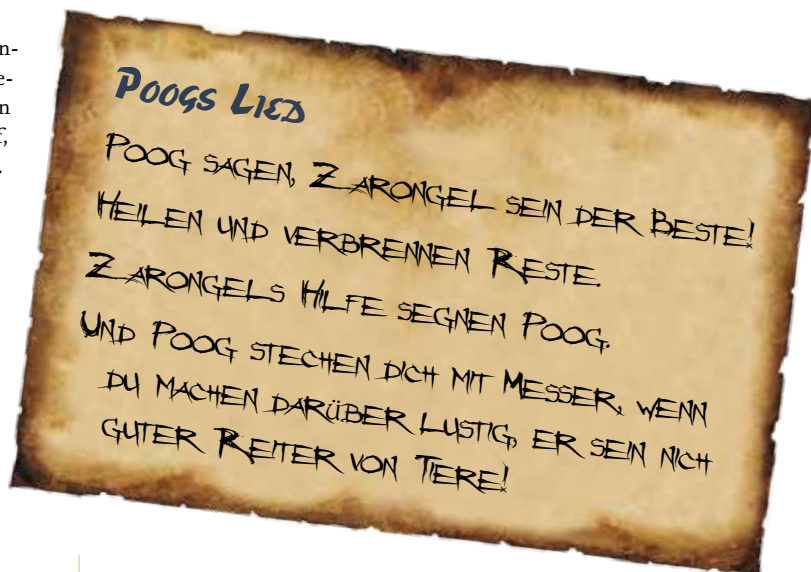 n-
e-
n
f,
.
Poogs Lied
Poog sagen, Zarongel sein der Beste!
Heilen und verbrennen Reste.
Zarongels Hilfe segnen Poog.
Und Poog stechen dich mit Messer, wenn
du machen darüber lustig, er sein nich
guter Reiter von Tiere!